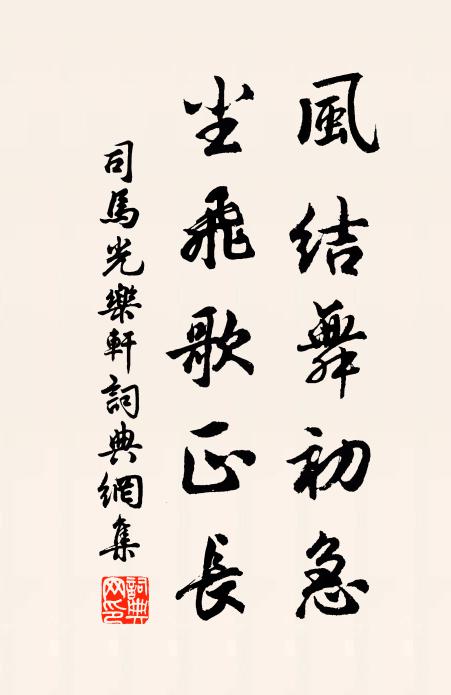 風結舞初急
尘飛歌正長
司馬光樂軒詞典網集
詞典
网印